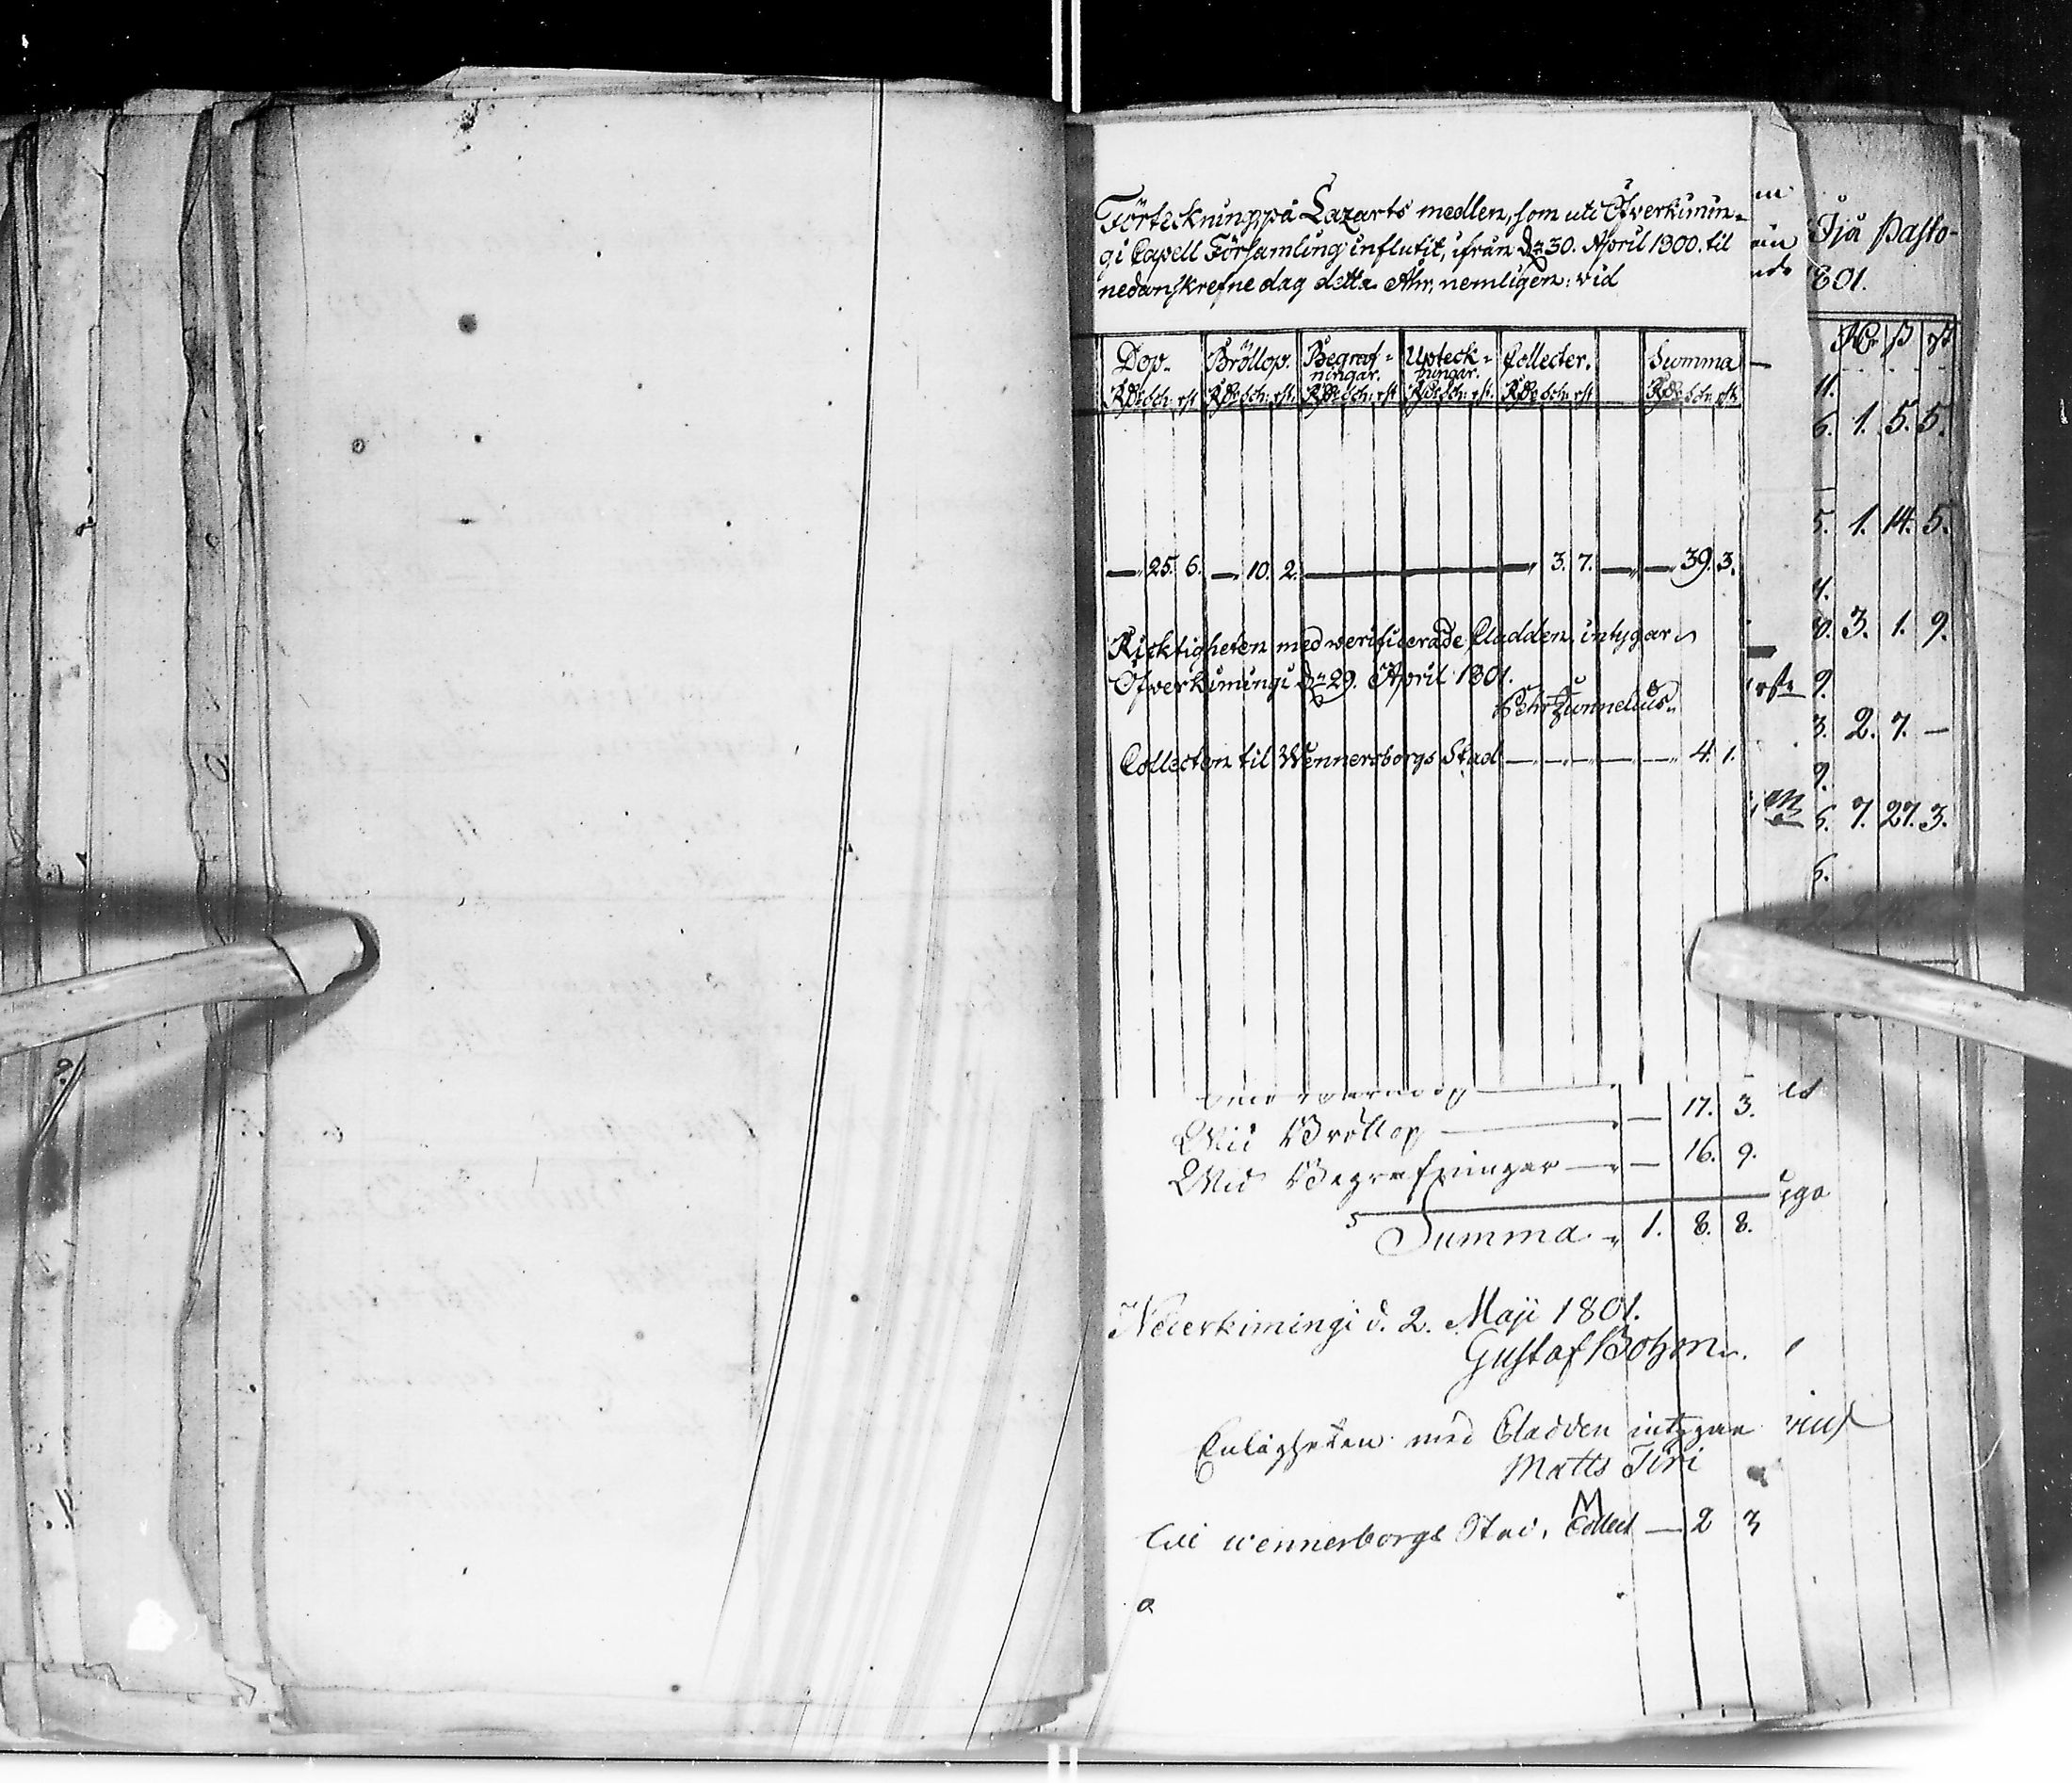 Förteckning på Lazarts medlen, som uti Öfverkimin-
gi Capell Församling influtit, ifrån dn 30. April 1800. til
nedanskrefne dag detta Ahr, nemligen: vid
Dop. Bröllop. Begraf- Upteck- Collecter. Summa
ningar. ningar.
Rdr sch: rst Rdr sch: rst. Rdr sch: rst Rdr sch: rst. Rdr sch: rst Rdr sch: rst.
— 25. 6. — 10. 2. — — 3. 7. — — 39. 3.
Ricktigheten med verificerade Cladden intygar
Öfverkimingi dn 29. April 1801.
Pehr Zunnelius.
Collecten til Wennersborgs Stad — 4. 1.
17. 3.
Wid Bröllop —
Wid Begrafningar — — 16. 9.
Summa 1. 8. 8.
Nederkimingi d. 2. Maji 1801.
Gustaf Bohm.
Enligheten med Cladden intygar
Matts Tiri
Till Wennerborgs Stad, Collect — 2 3
Ijå Pasto-
801.
Rdr ß rst
11.
6. 1. 5. 5.
5. 1. 14. 5.
3. 1. 9.
9.
3. 2. 7. —
9.
6. 7. 27. 3.
6.